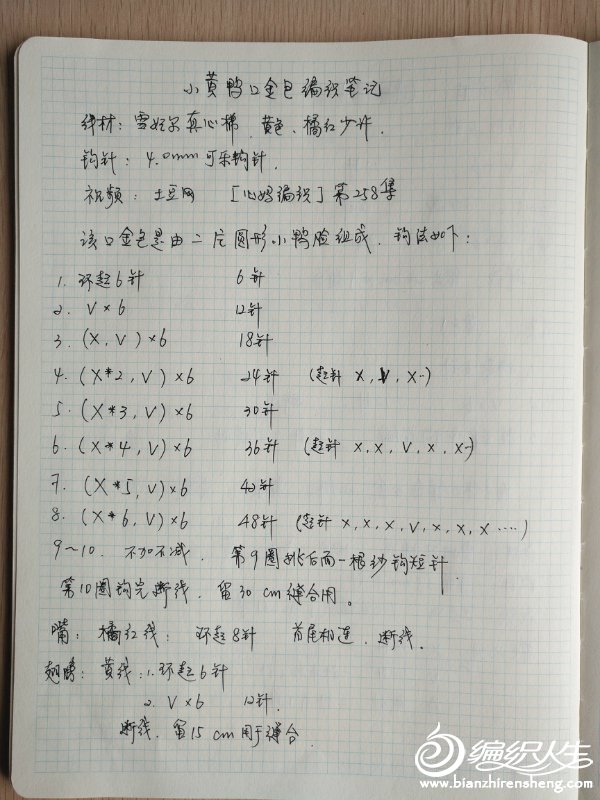 小黄鸭口金包编织笔记
线材：雪妃尔真心棉、黄色、橘红少许.
钩针：4.0mm可乐钩针.
视频：土豆网 [心妈编织]第258集
该口金包是由二片圆形小鸭脸组成，钩法如下：
1. 环起6针 6针
2. V×6 12针
3. (X,V)×6 18针
4. (X*2,V)×6 24针 (起针 X,V,X··)
5. (X*3,V)×6 30针
6. (X*4,V)×6 36针 (起针 X,X,V,X,X··)
7. (X*5,V)×6 42针
8. (X*6,V)×6 48针 (起针 X,X,X,V,X,X,X····)
9~10. 不加不减. 第9圈挑后面一根纱钩短针.
第10圈钩完断线，留30cm缝合用。
嘴：橘红线：环起8针 首尾相连、断线.
翅膀：黄线：1.环起6针
2. V×6 12针.
断线，留15cm用于缝合.
编织人生
www.bianzhirensheng.com